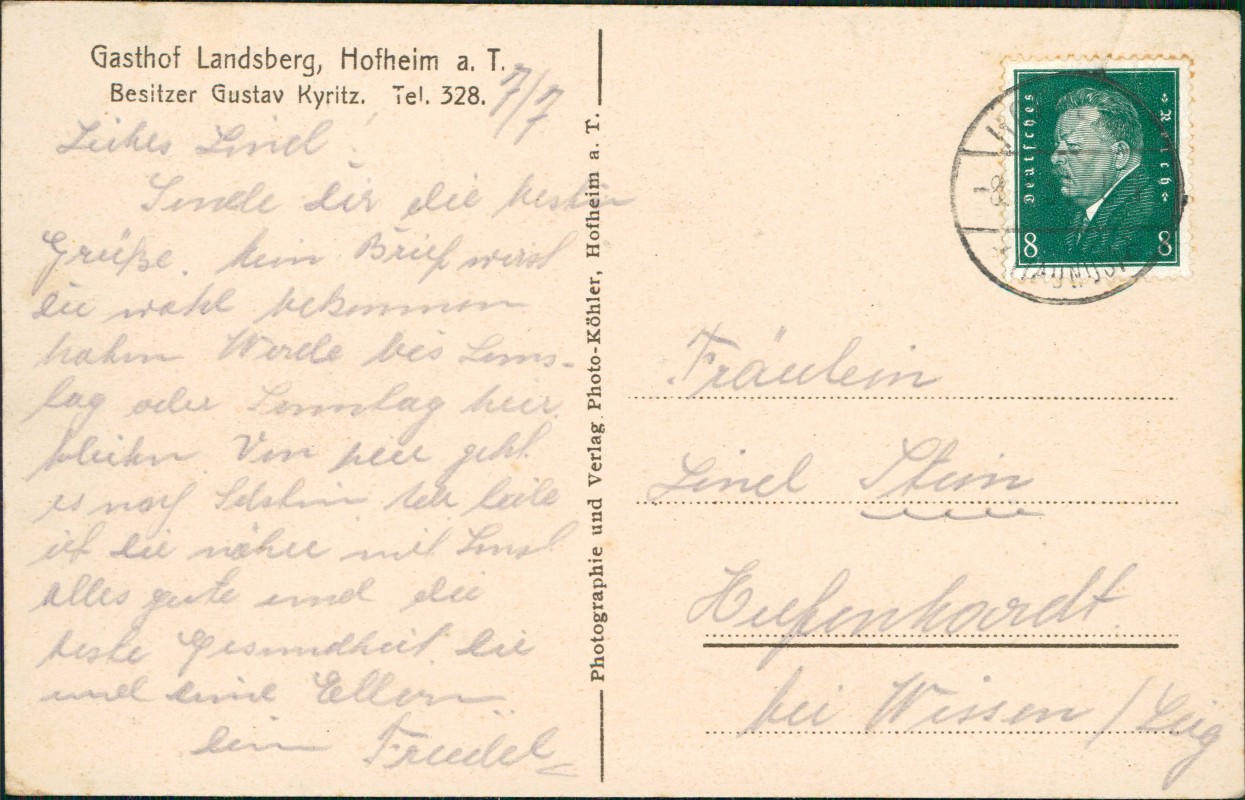 Gasthof Landsberg, Hofheim a. T.
Besitzer Gustav Kyritz. Tel. 328.
7/7
Liebes Linel!
Sende dir die besten
Grüße. Brief wirst
die wohl bekommen
haben Werde bis Sams-
tag oder Sonntag hier
bleiben Von hier geht
es nach
ich die näher mit Sonst
alles gute und die
beste Gesundheit. die
und deine Eltern.
dein Friedel
Photographie und Verlag Photo-Köhler, Hofheim a. T.
Deutsches Reich
8 8
Fräulein
Linel Stein
bei Wissen / Sieg